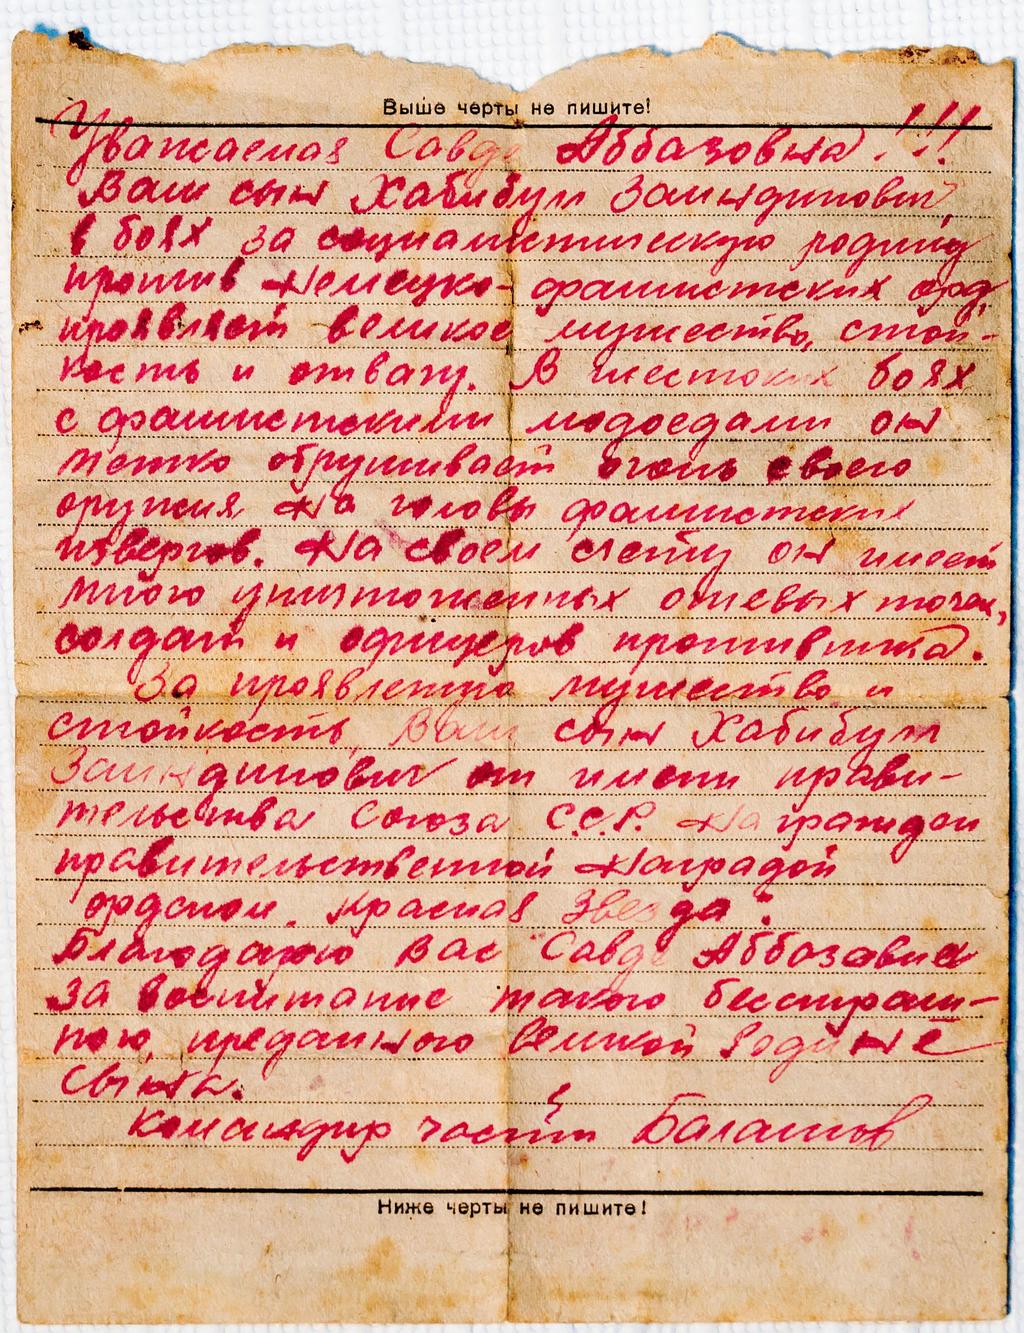 Выше черты не пишите!
Уважаемая Савде Аббазовна!!!
Ваш сын Хабибул Заиндинович,
в боях за социалистическую родину
против немецко-фашистских орд,
проявляет великое мужество, стой-
кость и отвагу. В жестоких боях
с фашистскими людоедами он
метко обрушивает огонь своего
оружия на головы фашистских
извергов. На своем счету он имеет
много уничтоженных огневых точек,
солдат и офицеров противника.
За проявленно мужество и
стойкость, Ваш сын Хабибул
Заиндинович от имени прави-
тельства Союза С.С.Р. награжден
правительственной наградой
орденом "Красная Звезда".
Благодарю Вас Савде Аббазавна
за воспитание такого бесстраш-
ного, преданного великой Родине
сына.
Командир части Балашов
Ниже черты не пишите!